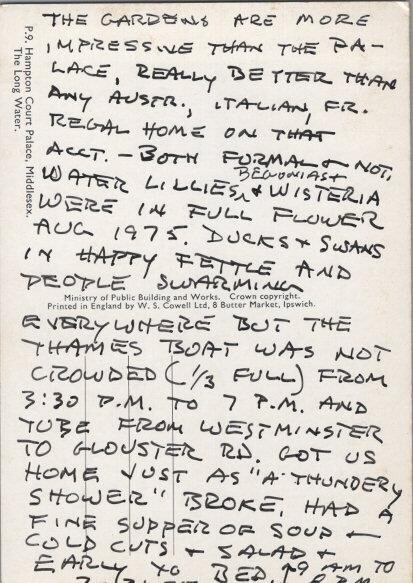 P.9. Hampton Court Palace, Middlesex.
The Long Water.
THE GARDENS ARE MORE
IMPRESSIVE THAN THE PA-
LACE, REALLY BETTER THAN
ANY AUSTR., ITALIAN, FR.
REGAL HOME ON THAT
ACCT. - BOTH FORMAL & NOT,
BEGONIAS &
WATER LILLIES, & WISTERIA
WERE IN FULL FLOWER
AUG 1975. DUCKS & SWANS
IN HAPPY FETTLE AND
PEOPLE SWARMING
Ministry of Public Building and Works. Crown copyright.
Printed in England by W. S. Cowell Ltd, 8 Butter Market, Ipswich.
EVERYWHERE BUT THE
THAMES BOAT WAS NOT
CROWDED (1/3 FULL) FROM
3:30 P.M. TO 7 P.M. AND
TUBE FROM WESTMINSTER
TO GLOUSTER RD. GOT US
HOME JUST AS "A THUNDERY
SHOWER" BROKE. HAD A
FINE SUPPER OF SOUP &
COLD CUTS & SALAD &
EARLY TO BED, 9 AM TO